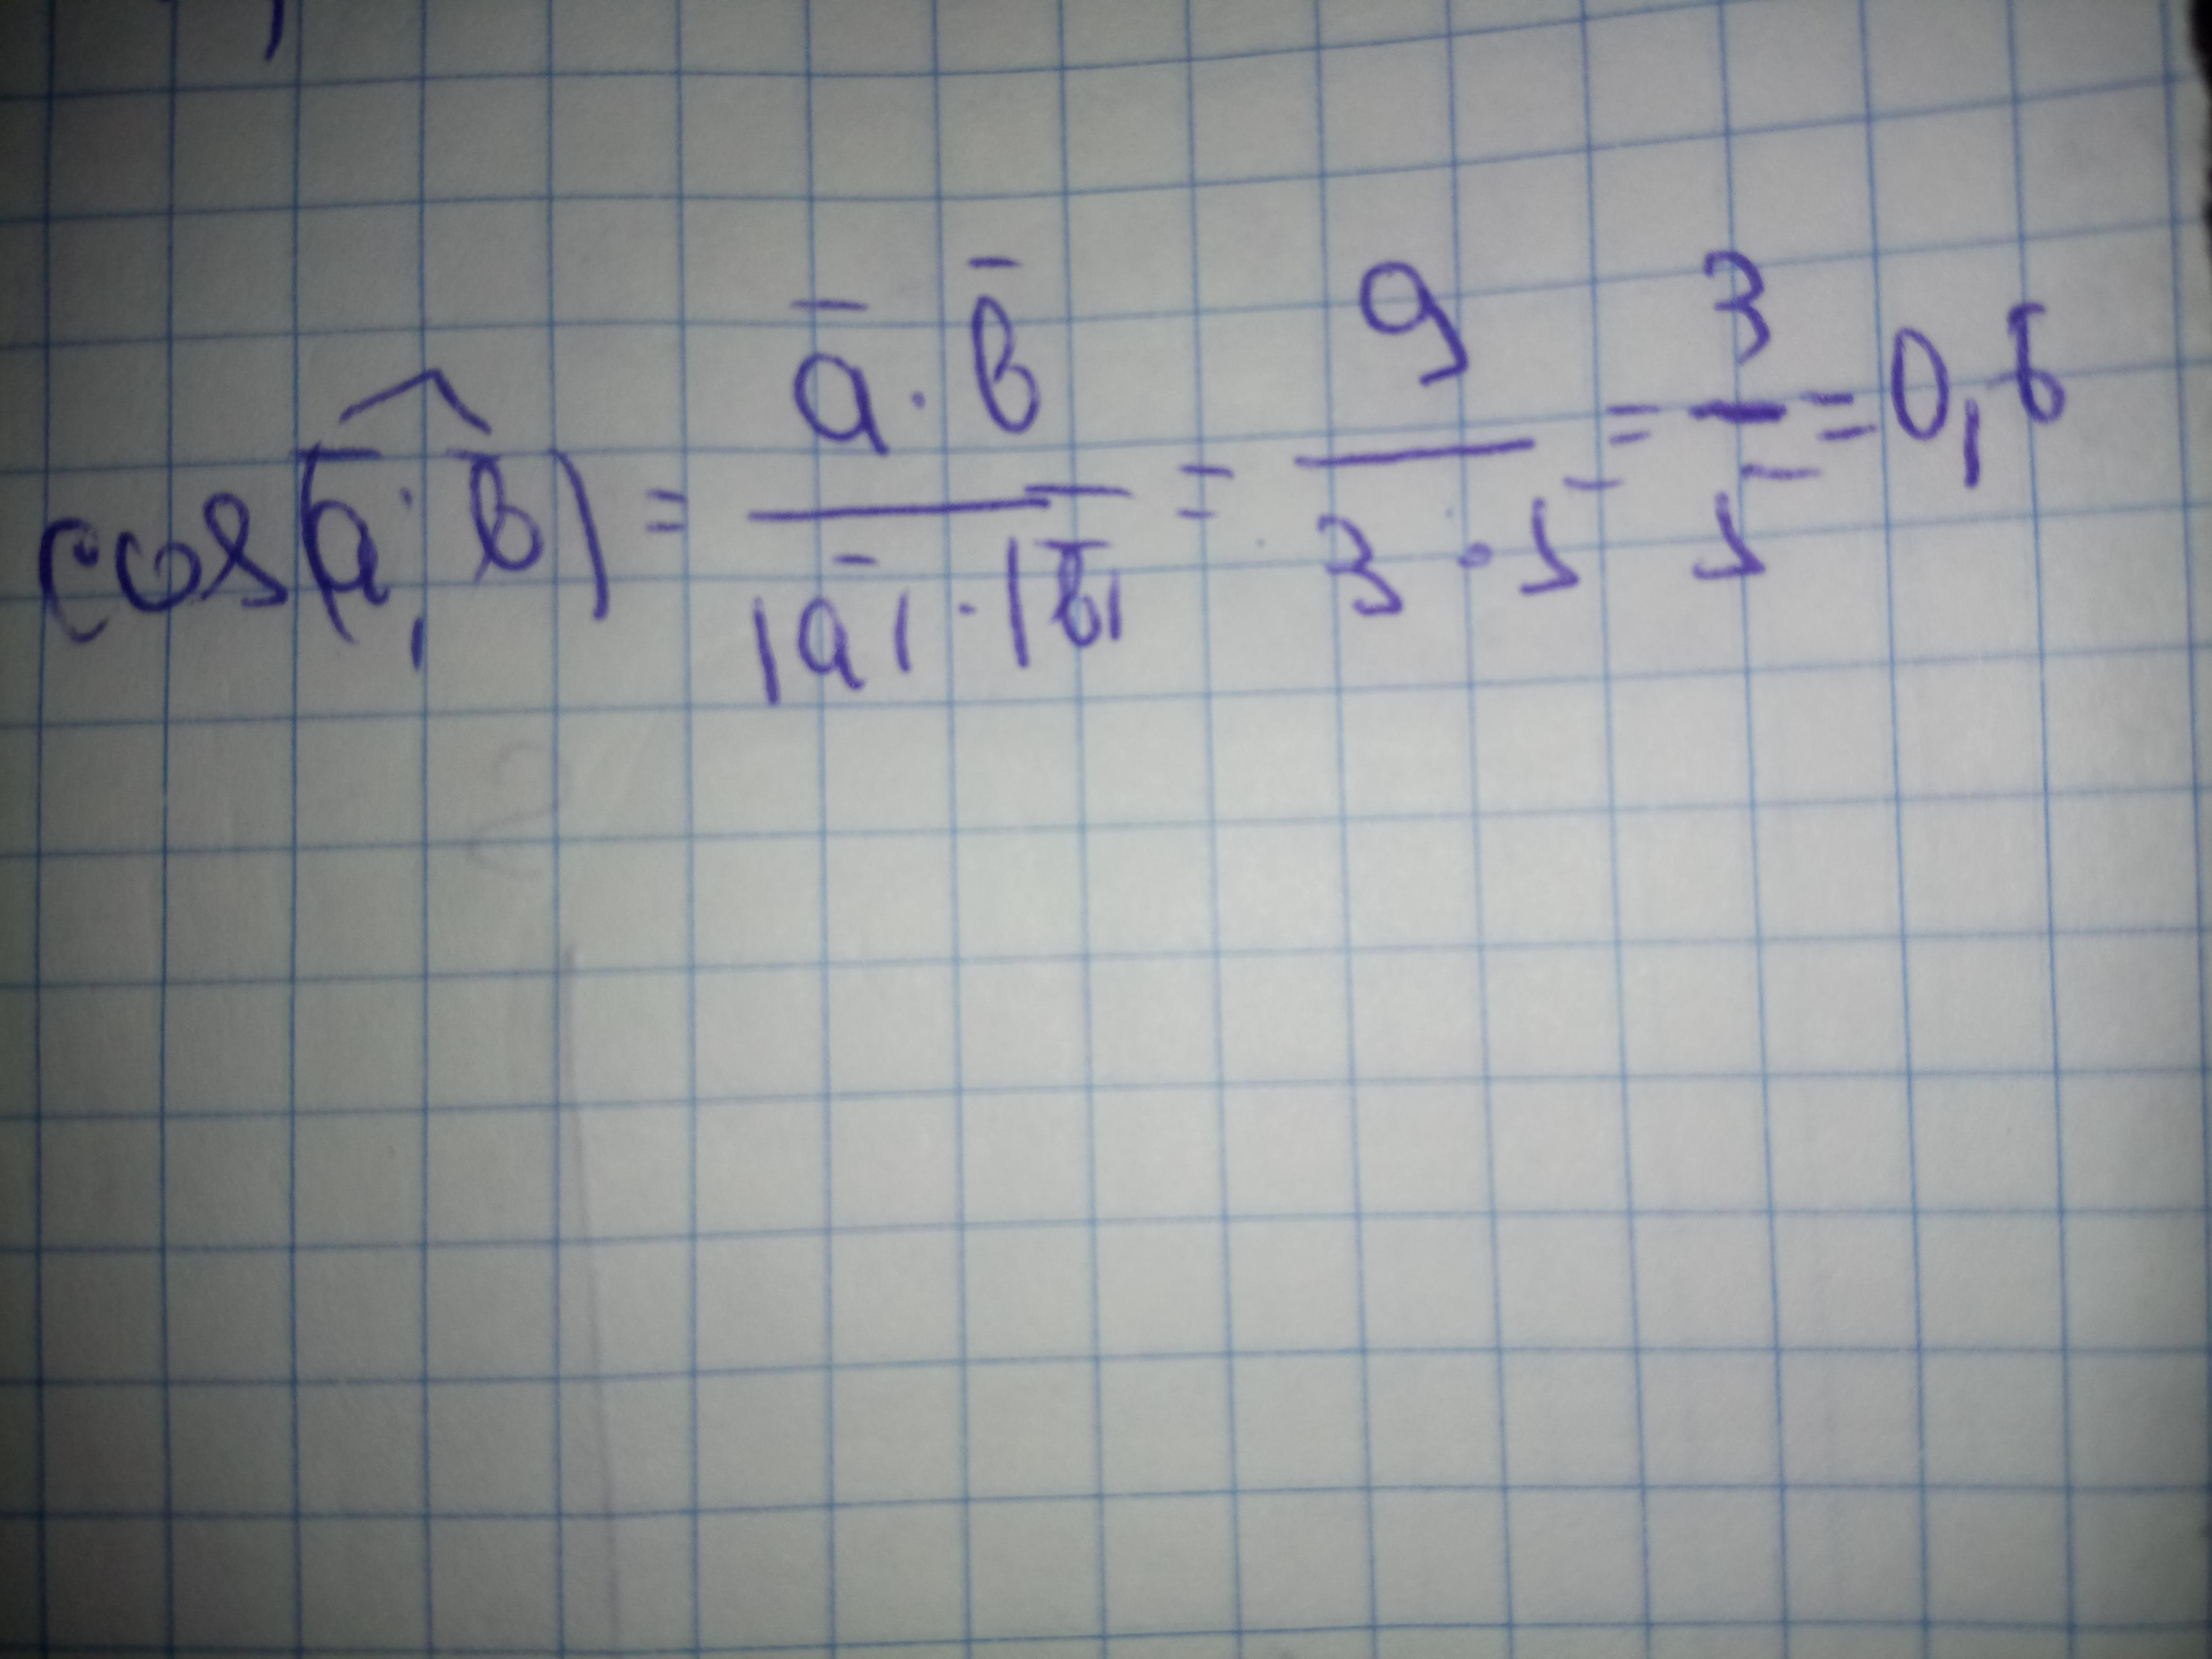 cos(a̅,^b̅) = (a̅ · b̅) / (|a̅| · |b̅|) = 9 / (3 · 5) = 3/5 = 0,6